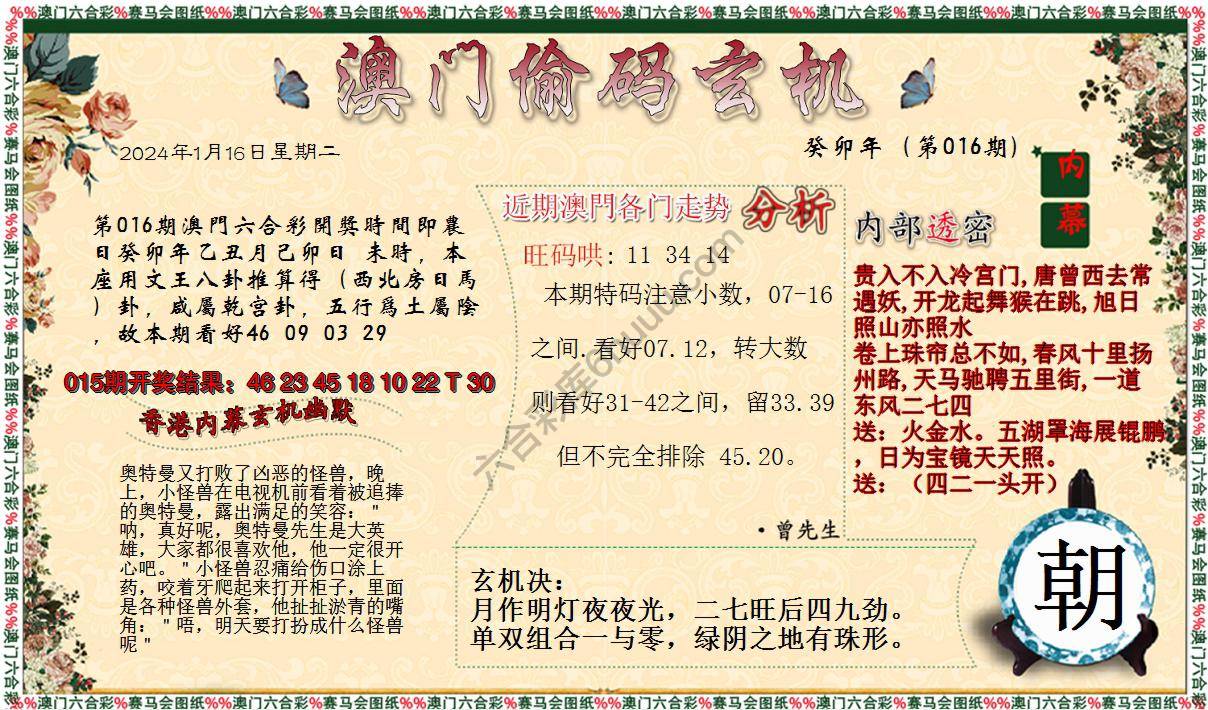 %%澳门六合彩%赛马会图纸%%澳门六合彩%赛马会图纸%%澳门六合彩%赛马会图纸%%澳门六合彩%赛马会图纸%%澳门六合彩%赛马会图纸%%澳门六合彩%赛马会图纸%%
澳门偷码玄机
2024年1月16日星期二
癸卯年（第016期）
内幕
第016期澳門六合彩開獎時間即農
日癸卯年乙丑月己卯日 未時，本
座用文王八卦推算得（西北房日馬
）卦，咸屬乾宫卦，五行爲土屬陰
，故本期看好46 09 03 29
015期开奖结果：46 23 45 18 10 22 T 30
香港内幕玄机幽默
奥特曼又打败了凶恶的怪兽，晚
上，小怪兽在电视机前看着被追捧
的奥特曼，露出满足的笑容："
呐，真好呢，奥特曼先生是大英
雄，大家都很喜欢他，他一定很开
心吧。"小怪兽忍痛给伤口涂上
药，咬着牙爬起来打开柜子，里面
是各种怪兽外套，他扯扯淤青的嘴
角："唔，明天要打扮成什么怪兽
呢"
近期澳門各门走勢 分析
旺码哄：11 34 14
本期特码注意小数，07-16
之间.看好07.12，转大数
则看好31-42之间，留33.39
但不完全排除 45.20。
·曾先生
内部透密
贵入不入冷宫门,唐曾西去常
遇妖,开龙起舞猴在跳,旭日
照山亦照水
卷上珠帘总不如,春风十里扬
州路,天马驰聘五里街,一道
东风二七四
送：火金水。五湖罩海展锟鹏
，日为宝镜天天照。
送：（四二一头开）
玄机决：
月作明灯夜夜光，二七旺后四九劲。
单双组合一与零，绿阴之地有珠形。
朝